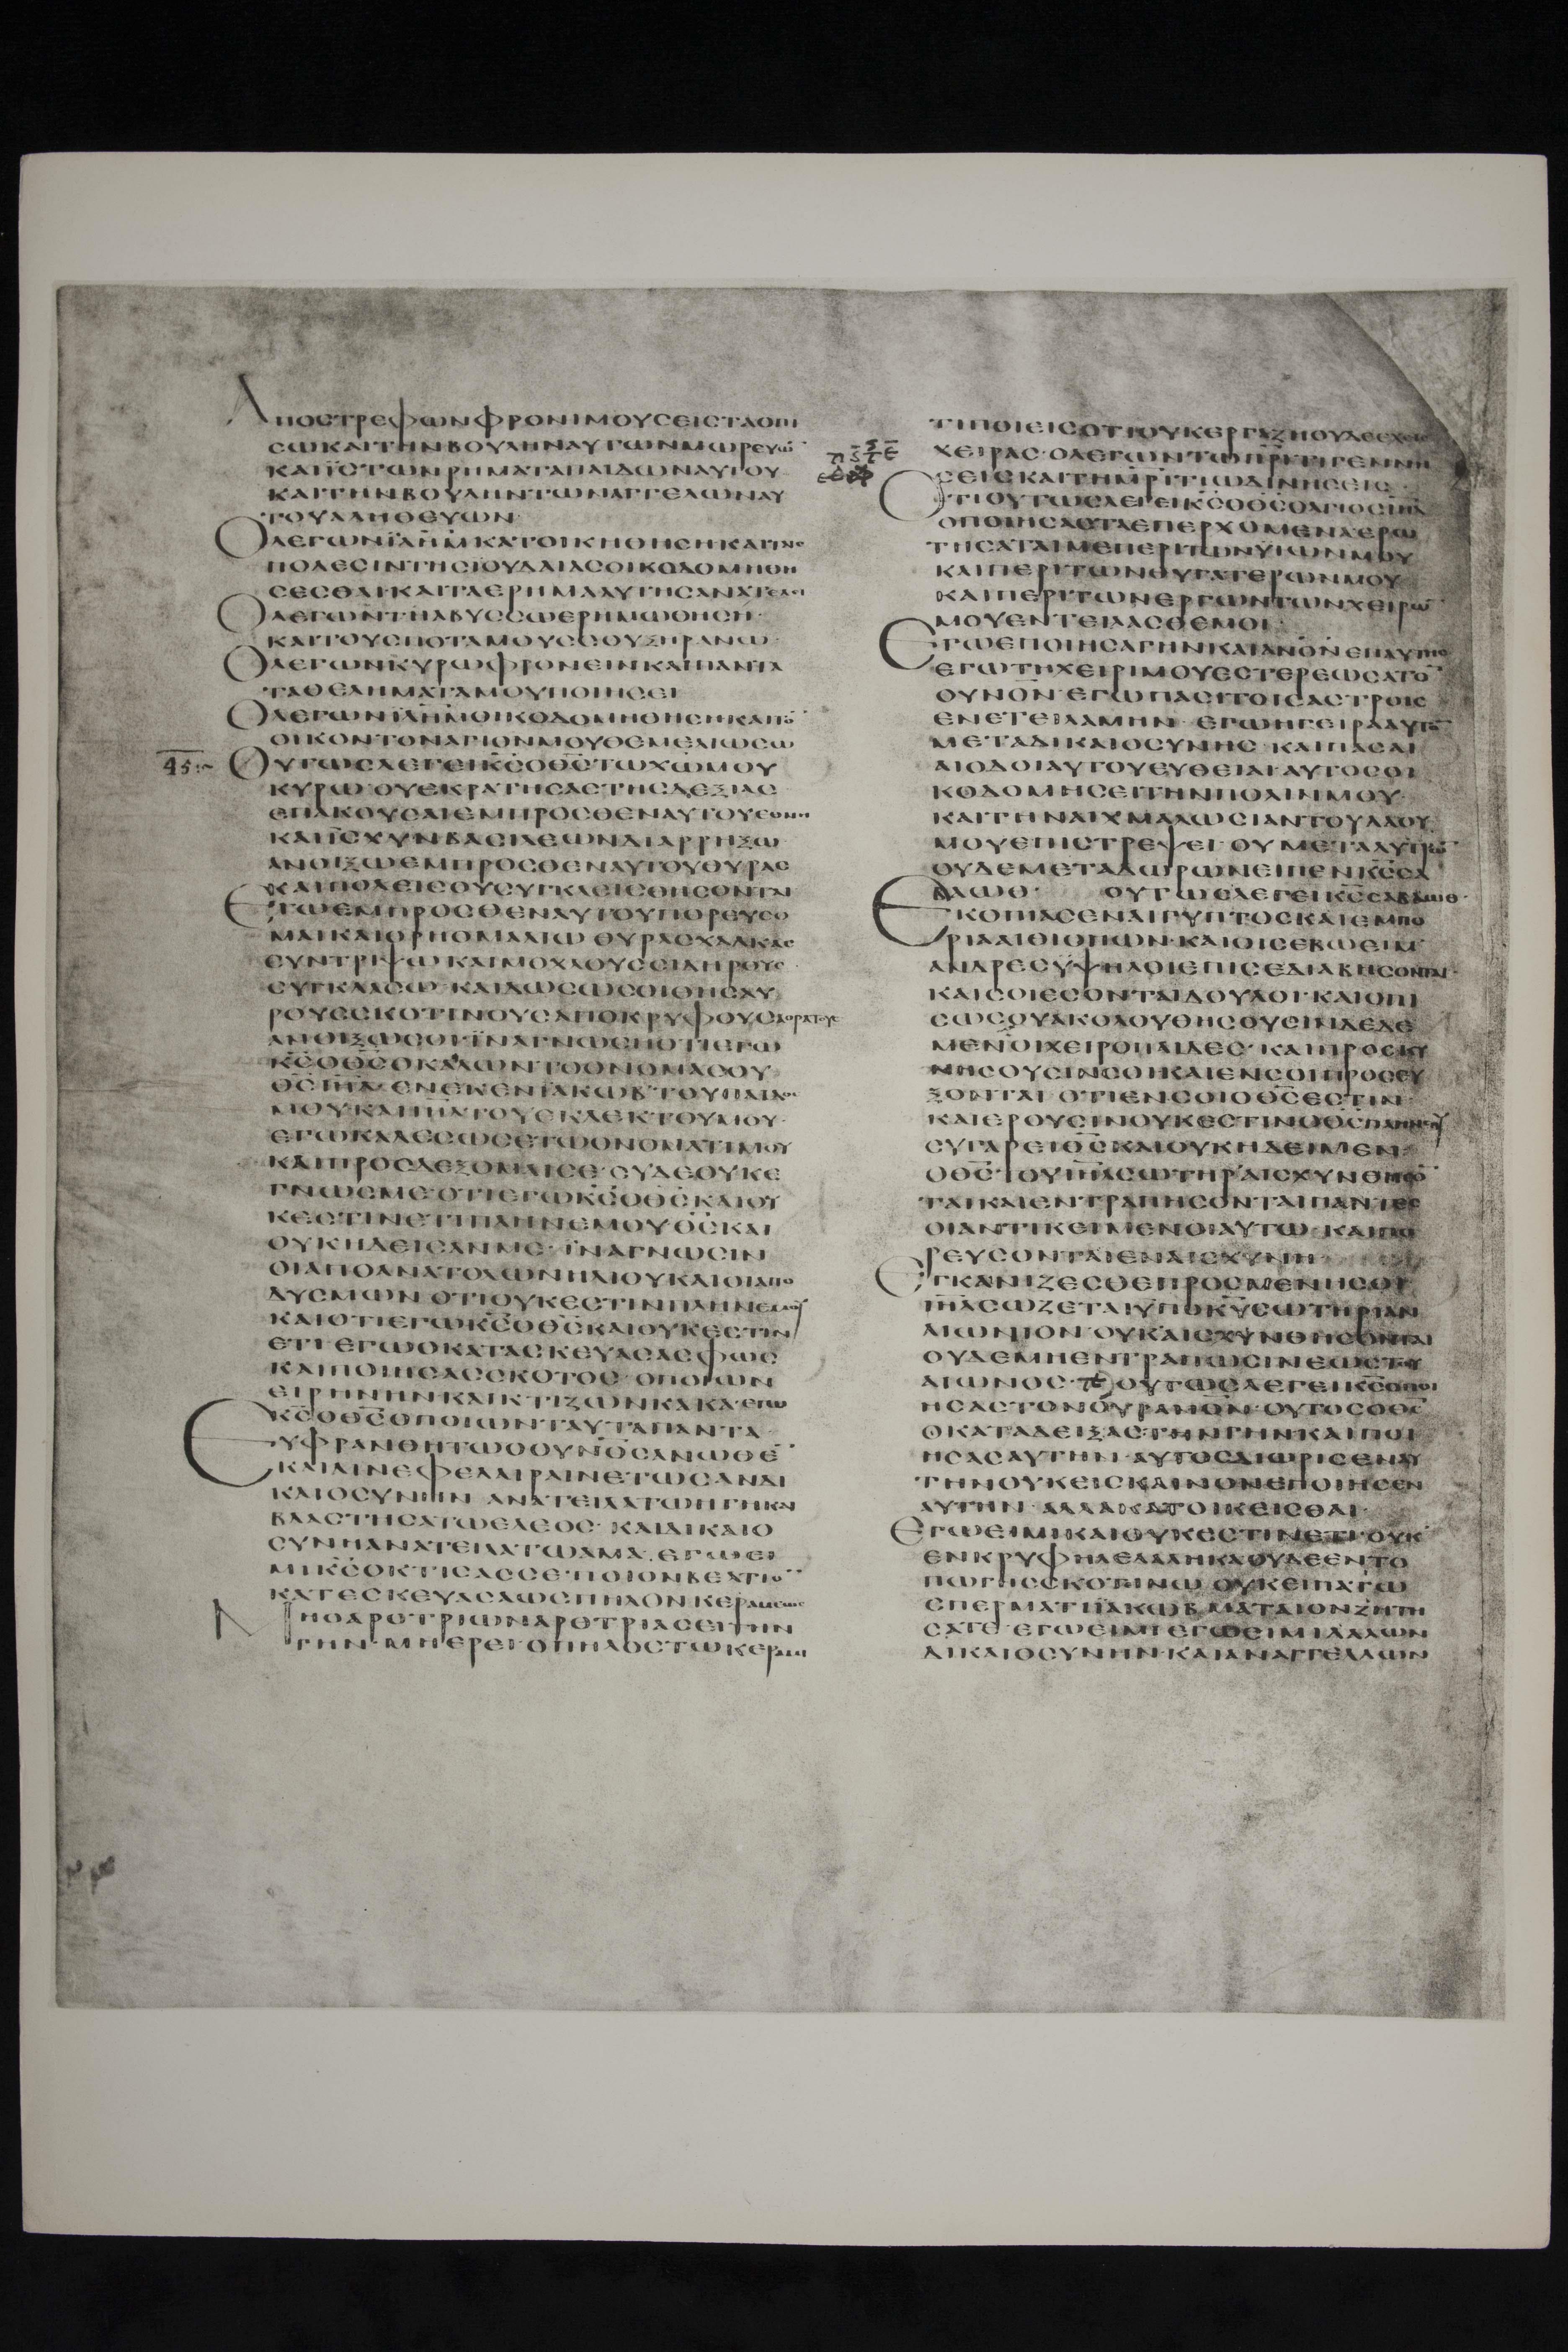 ΑΠΟΣΤΡΕΦΩΝΦΡΟΝΙΜΟΥΣΕΙΣΤΑΟΠΙ
ΣΩΚΑΙΤΗΝΒΟΥΛΗΝΑΥΤΩΝΜΩΡΕΥΩ̅
ΚΑΙΪΣΤΩΝΡΗΜΑΤΑΠΑΙΔΩΝΑΥΤΟΥ
ΚΑΙΤΗΝΒΟΥΛΗΝΤΩΝΑΓΓΕΛΩΝΑΥ
ΤΟΥΑΛΗΘΕΥΩΝ·
ΟΛΕΓΩΝΙ̅Λ̅Η̅Μ̅ΚΑΤΟΙΚΗΘΗΣΗΚΑΙΤΑΙΣ
ΠΟΛΕΣΙΝΤΗΣΙΟΥΔΑΙΑΣΟΙΚΟΔΟΜΗΘΗ
ΣΕΣΘΑΙ·ΚΑΙΤΑΕΡΗΜΑΑΥΤΗΣΑΝΑΤΕΛΕΙ
ΟΛΕΓΩΝΤΗΑΒΥΣΣΩΕΡΗΜΩΘΗΣΗ·
ΚΑΙΤΟΥΣΠΟΤΑΜΟΥΣΣΟΥΞΗΡΑΝΩ·
ΟΛΕΓΩΝΚΥΡΩΦΡΟΝΕΙΝΚΑΙΠΑΝΤΑ
ΤΑΘΕΛΗΜΑΤΑΜΟΥΠΟΙΗΣΕΙ
ΟΛΕΓΩΝΙ̅Λ̅Η̅Μ̅ΟΙΚΟΔΟΜΗΘΗΣΗΚΑΙΤΟ̅
ΟΙΚΟΝΤΟΝΑΓΙΟΝΜΟΥΘΕΜΕΛΙΩΣΩ
45:~ ΟΥΤΩΣΛΕΓΕΙΚ̅Σ̅ΟΘ̅Σ̅ΤΩΧΩΜΟΥ
ΚΥΡΩ·ΟΥΕΚΡΑΤΗΣΑΣΤΗΣΔΕΞΙΑΣ
ΕΠΑΚΟΥΣΑΙΕΜΠΡΟΣΘΕΝΑΥΤΟΥΕΘΝΗ
ΚΑΙΪΣΧΥΝΒΑΣΙΛΕΩΝΔΙΑΡΡΗΞΩ
ΑΝΟΙΞΩΕΜΠΡΟΣΘΕΝΑΥΤΟΥΘΥΡΑΣ
ΚΑΙΠΟΛΕΙΣΟΥΣΥΓΚΛΕΙΣΘΗΣΟΝΤΑΙ
ΕΓΩΕΜΠΡΟΣΘΕΝΑΥΤΟΥΠΟΡΕΥΣΟ
ΜΑΙΚΑΙΟΡΗΟΜΑΛΙΩ·ΘΥΡΑΣΧΑΛΚΑΣ
ΣΥΝΤΡΙΨΩΚΑΙΜΟΧΛΟΥΣΣΙΔΗΡΟΥΣ·
ΣΥΓΚΛΑΣΩ·ΚΑΙΔΩΣΩΣΟΙΘΗΣΑΥ
ΡΟΥΣΣΚΟΤΙΝΟΥΣΑΠΟΚΡΥΦΟΥΣΑΟΡΑΤΟΥΣ
ΑΝΟΙΞΩΣΟΙ·ΪΝΑΓΝΩΣΗΟΤΙΕΓΩ
Κ̅Σ̅ΟΘ̅Σ̅ΟΚΑΛΩΝΤΟΟΝΟΜΑΣΟΥ
Θ̅Σ̅Ι̅Η̅Λ̅·ΕΝΕΚΕΝΪΑΚΩΒΤΟΥΠΑΙΔΟΣ
ΜΟΥΚΑΙΙ̅Η̅Λ̅ΤΟΥΕΚΛΕΚΤΟΥΜΟΥ·
ΕΓΩΚΑΛΕΣΩΣΕΤΩΟΝΟΜΑΤΙΜΟΥ
ΚΑΙΠΡΟΣΔΕΞΟΜΑΙΣΕ·ΣΥΔΕΟΥΚΕ
ΓΝΩΣΜΕ·ΟΤΙΕΓΩΚ̅Σ̅ΟΘ̅Σ̅ΚΑΙΟΥ
ΚΕΣΤΙΝΕΤΙΠΛΗΝΕΜΟΥΘ̅Σ̅ΚΑΙ
ΟΥΚΗΔΕΙΣΑΝΜΕ·ΪΝΑΓΝΩΣΙΝ
ΟΙΑΠΟΑΝΑΤΟΛΩΝΗΛΙΟΥΚΑΙΟΙΑΠΟ
ΔΥΣΜΩΝ·ΟΤΙΟΥΚΕΣΤΙΝΠΛΗΝΕΜΟΥ
ΚΑΙΟΤΙΕΓΩΚ̅Σ̅ΟΘ̅Σ̅ΚΑΙΟΥΚΕΣΤΙΝ
ΕΤΙ·ΕΓΩΟΚΑΤΑΣΚΕΥΑΣΑΣΦΩΣ
ΚΑΙΠΟΙΗΣΑΣΣΚΟΤΟΣ·ΟΠΟΙΩΝ
ΕΙΡΗΝΗΝΚΑΙΚΤΙΖΩΝΚΑΚΑ·ΕΓΩ
Κ̅Σ̅ΟΘ̅Σ̅ΟΠΟΙΩΝΤΑΥΤΑΠΑΝΤΑ·
ΕΥΦΡΑΝΘΗΤΩΟΟΥΝ̅Ο̅Σ̅ΑΝΩΘΕ̅
ΚΑΙΑΙΝΕΦΕΛΑΙΡΑΙΝΕΤΩΣΑΝΔΙ
ΚΑΙΟΣΥΝΗΝ·ΑΝΑΤΕΙΛΑΤΩΗΓΗΚΑΙ
ΒΛΑΣΤΗΣΑΤΩΕΛΕΟΣ·ΚΑΙΔΙΚΑΙΟ
ΣΥΝΗΑΝΑΤΕΙΛΑΤΩΑΜΑ·ΕΓΩΕΙ
ΜΙΚ̅Σ̅ΟΚΤΙΣΑΣΣΕ·ΠΟΙΟΝΒΕΛΤΙΟ̅
ΚΑΤΕΣΚΕΥΑΣΑΩΣΠΗΛΟΝΚΕΡΑΜΕΩΣ
ΜΗΟΑΡΟΤΡΙΩΝΑΡΟΤΡΙΑΣΕΙΤΗΝ
ΓΗΝ·ΜΗΕΡΕΙΟΠΗΛΟΣΤΩΚΕΡΑΜΕΙ
ΤΙΠΟΙΕΙΣΟΤΙΟΥΚΕΡΓΑΖΗΟΥΔΕΕΧΕΙΣ
ΧΕΙΡΑΣ·ΟΛΕΓΩΝΤΩΠ̅Ρ̅Ι̅ΤΙΓΕΝΝΗ
ΣΕΙΣΚΑΙΤΗΜ̅Ρ̅Ι̅ΤΙΩΔΙΝΗΣΕΙΣ·
ΟΤΙΟΥΤΩΣΛΕΓΕΙΚ̅Σ̅ΟΘ̅Σ̅ΟΑΓΙΟΣΙ̅Η̅Λ̅
ΟΠΟΙΗΣΑΣΤΑΕΠΕΡΧΟΜΕΝΑΕΡΩ
ΤΗΣΑΤΑΙΜΕΠΕΡΙΤΩΝΥΪΩΝΜΟΥ
ΚΑΙΠΕΡΙΤΩΝΘΥΓΑΤΕΡΩΝΜΟΥ
ΚΑΙΠΕΡΙΤΩΝΕΡΓΩΝΤΩΝΧΕΙΡΩ̅
ΜΟΥΕΝΤΕΙΛΑΣΘΕΜΟΙ·
ΕΓΩΕΠΟΙΗΣΑΓΗΝΚΑΙΑΝΟ̅Ν̅ΕΠΑΥΤΗΣ
ΕΓΩΤΗΧΕΙΡΙΜΟΥΕΣΤΕΡΕΩΣΑΤΟ̅
ΟΥΝΟ̅Ν̅·ΕΓΩΠΑΣΙΤΟΙΣΑΣΤΡΟΙΣ
ΕΝΕΤΕΙΛΑΜΗΝ·ΕΓΩΗΓΕΙΡΑΑΥΤΟ̅
ΜΕΤΑΔΙΚΑΙΟΣΥΝΗΣ·ΚΑΙΠΑΣΑΙ
ΑΙΟΔΟΙΑΥΤΟΥΕΥΘΕΙΑΙ·ΑΥΤΟΣΟΙ
ΚΟΔΟΜΗΣΕΙΤΗΝΠΟΛΙΝΜΟΥ·
ΚΑΙΤΗΝΑΙΧΜΑΛΩΣΙΑΝΤΟΥΛΑΟΥ
ΜΟΥΕΠΙΣΤΡΕΨΕΙ·ΟΥΜΕΤΑΛΥΤΡΩ̅
ΟΥΔΕΜΕΤΑΔΩΡΩΝΕΙΠΕΝΚ̅Σ̅ΣΑ
ΒΑΩΘ· ΟΥΤΩΣΛΕΓΕΙΚ̅Σ̅ΣΑΒΑΩΘ·
ΕΚΟΠΙΑΣΕΝΑΙΓΥΠΤΟΣΚΑΙΕΜΠΟ
ΡΙΑΑΙΘΙΟΠΩΝ·ΚΑΙΟΙΣΕΒΩΕΙΜ
ΑΝΔΡΕΣΥΨΗΛΟΙΕΠΙΣΕΔΙΑΒΗΣΟΝΤΑΙ·
ΚΑΙΣΟΙΕΣΟΝΤΑΙΔΟΥΛΟΙ·ΚΑΙΟΠΙ
ΣΩΣΟΥΑΚΟΛΟΥΘΗΣΟΥΣΙΝΔΕΔΕ
ΜΕΝΟΙΧΕΙΡΟΠΑΙΔΕΣ·ΚΑΙΠΡΟΣΚΥ
ΝΗΣΟΥΣΙΝΣΟΙΚΑΙΕΝΣΟΙΠΡΟΣΕΥ
ΞΟΝΤΑΙ·ΟΤΙΕΝΣΟΙΟΘ̅Σ̅ΕΣΤΙΝ·
ΚΑΙΕΡΟΥΣΙΝΟΥΚΕΣΤΙΝΘ̅Σ̅ΠΛΗΝΣΟΥ
ΣΥΓΑΡΕΙΘ̅Σ̅ΚΑΙΟΥΚΗΔΕΙΜΕΝ·
ΟΘ̅Σ̅ΤΟΥΙ̅Η̅Λ̅ΣΩΤΗΡ·ΑΙΣΧΥΝΘΗΣΟ̅
ΤΑΙΚΑΙΕΝΤΡΑΠΗΣΟΝΤΑΙΠΑΝΤΕΣ
ΟΙΑΝΤΙΚΕΙΜΕΝΟΙΑΥΤΩ·ΚΑΙΠΟ
ΡΕΥΣΟΝΤΑΙΕΝΑΙΣΧΥΝΗ
ΕΓΚΑΙΝΙΖΕΣΘΕΠΡΟΣΜΕΝΗΣΟΙ
Ι̅Η̅Λ̅ΣΩΖΕΤΑΙΥΠΟΚ̅Υ̅ΣΩΤΗΡΙΑΝ
ΑΙΩΝΙΟΝ·ΟΥΚΑΙΣΧΥΝΘΗΣΟΝΤΑΙ
ΟΥΔΕΜΗΕΝΤΡΑΠΩΣΙΝΕΩΣΤΟΥ
ΑΙΩΝΟΣ· ΟΥΤΩΣΛΕΓΕΙΚ̅Σ̅ΟΠΟΙ
ΗΣΑΣΤΟΝΟΥΡΑΝΟΝ·ΟΥΤΟΣΟΘ̅Σ̅
ΟΚΑΤΑΔΕΙΞΑΣΤΗΝΓΗΝΚΑΙΠΟΙ
ΗΣΑΣΑΥΤΗΝ·ΑΥΤΟΣΔΙΩΡΙΣΕΝΑΥ
ΤΗΝΟΥΚΕΙΣΚΑΙΝΟΝΕΠΟΙΗΣΕΝ
ΑΥΤΗΝ·ΑΛΛΑΚΑΤΟΙΚΕΙΣΘΑΙ·
ΕΓΩΕΙΜΙΚΑΙΟΥΚΕΣΤΙΝΕΤΙ·ΟΥΚ
ΕΝΚΡΥΦΗΛΕΛΑΛΗΚΑΟΥΔΕΕΝΤΟ
ΠΩΓΗΣΣΚΟΤΙΝΩ·ΟΥΚΕΙΠΑΤΩ
ΣΠΕΡΜΑΤΙΪΑΚΩΒΜΑΤΑΙΟΝΖΗΤΗ
ΣΑΤΕ·ΕΓΩΕΙΜΙΕΓΩΕΙΜΙΛΑΛΩΝ
ΔΙΚΑΙΟΣΥΝΗΝ·ΚΑΙΑΝΑΓΓΕΛΛΩΝ